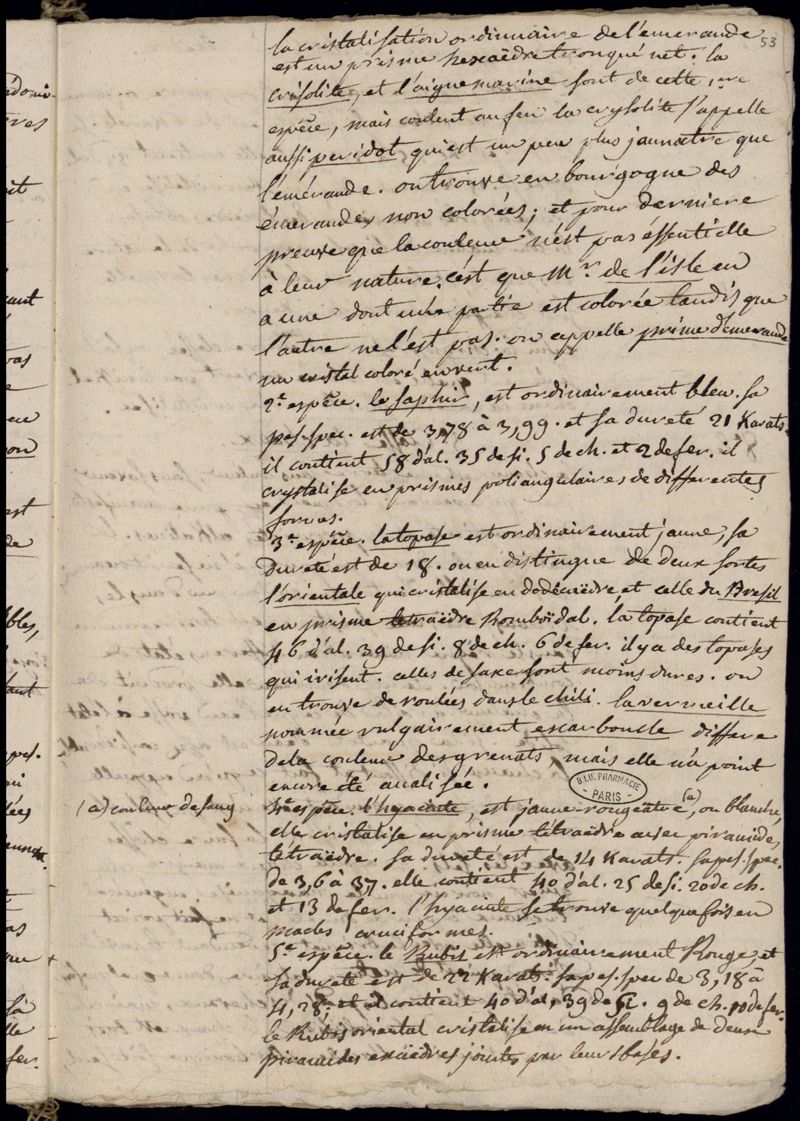 53
la cristalisation ordinnaire de l'emeraude
est un prisme hexaëdre tronqué net. la
crisolite, et l'aiguemarine sont de cette 1.re
espéce, mais coulent au feu la crysolite s'appelle
aussi peridot qui est un peu plus jaunatre que
l'emérande. on trouve en bourgogne des
émerandes non colorées; et pour derniere
preuve que la couleur n'est pas éssentielle
à leur nature. c'ést que M.r de l'isle en
a une dont une partie est colorée tandis que
l'autre ne l'est pas. on appelle prime d'emeraude
un cristal coloré en vert.
2.e espéce. le saphir, est ordinairement bleu. sa
pes. spec. est de 3,78 à 3,99. et sa dureté 21 Karats.
il contient 58 d'al. 35 de si. 5 de ch. et 2 de fer. il
crystalise en prismes poliangulaires de differentes
formes.
3.e espéce. la topase est ordinairement jaune, sa
Dureté est de 18. on en distingue de deux sortes
l'orientale qui cristalise en dodécaëdre, et celle du Bresil
en prisme tetraëdre Romboïdal. la topase contient
46 d'al. 39 de si. 8 de ch. 6 de fer. il y a des topases
qui irisent. celles de saxe sont moins dures. on
en trouve de roulées dans le chili. la vermeille
nommée vulgairement escarboucle differe
de la couleur des grenats, mais elle n'a point
encore été analisée.
B.I.U. PHARMACIE
PARIS
(a) couleur de sang
4.e espéce. l'hyacinte, est jaune-rougeatre (a), ou blanche,
elle cristalise en prisme tétraëdre avec piramide,
tétraëdre. sa dureté est de 14 Karats. sa pes. spec.
de 3,6 à 37. elle contient 40 d'al. 25 de si. 20 de ch.
et 13 de fer. l'hyacinte se trouve quelquefois en
macles cruciformes.
5.e espéce. le Rubis est ordinairement Rouge, et
sa dureté est de 22 Karats. sa pes. spec de 3,18 à
4,28; et il contient 40 d'al, 39 de si. 9 de ch. 10 de fer.
le Rubis oriental cristalise en un assemblage de deux
piramides exaëdres jointes par leurs bases.